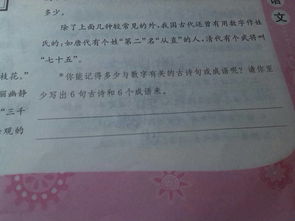 多少。
除了上面几种较常见的外，我国古代还曾有用数字作姓
氏的：如唐代有个姓“第二”名“从直”的人，清代有个武将叫
“七十五”。
桂花。”
*你能记得多少与数字有关的古诗句或成语呢？请你至
丽幽静
少写出6句古诗和6个成语来。
“三千
观的
语文